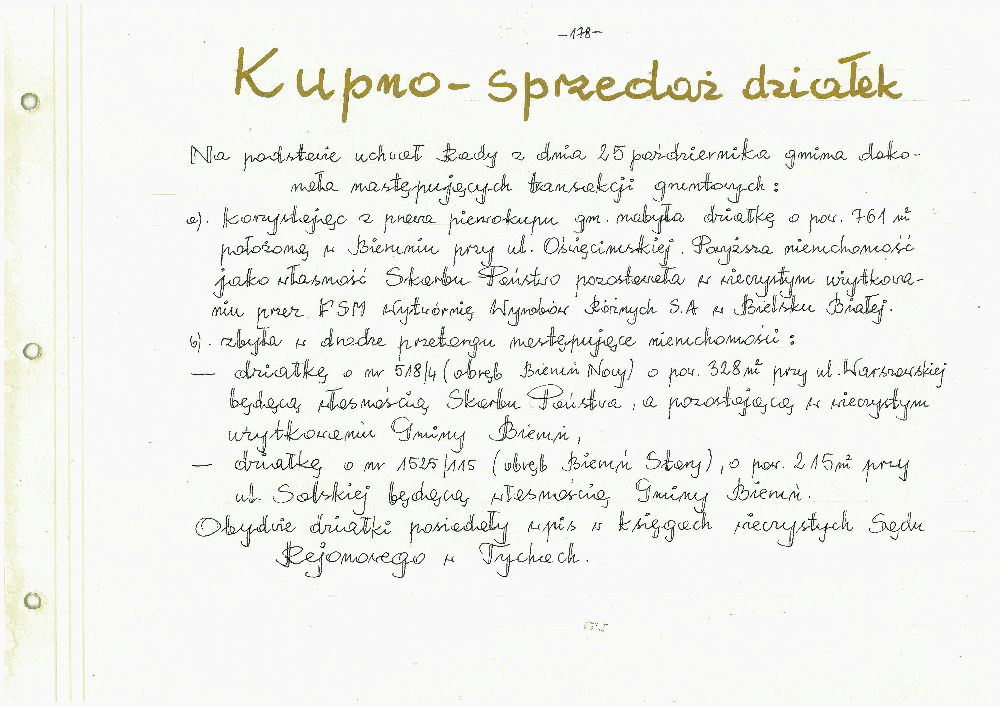 -178-
Kupno-sprzedaż działek
Na podstawie uchwał Rady z dnia 25 października gmina doko-
nała następujących transakcji gruntowych:
a). Korzystając z prawa pierwokupu gm. nabyła działkę o pow. 761 m²
położoną w Bieruniu przy ul. Oświęcimskiej. Powyższa nieruchomość
jako własność Skarbu Państwa pozostawała w wieczystym użytkowa-
niu przez FSM Wytwórnię Wyrobów Różnych S.A w Bielsku Białej.
b). zbyła w drodze przetargu następujące nieruchomości:
— działkę o nr 518/4 (obręb Bieruń Nowy) o pow. 328 m² przy ul. Warszawskiej
będącą własnością Skarbu Państwa, a pozostającą w wieczystym
użytkowaniu Gminy Bieruń,
— działkę o nr 1525/115 (obręb Bieruń Stary), o pow. 215 m² przy
ul. Solskiej będącą własnością Gminy Bieruń.
Obydwie działki posiadały wpis w księgach wieczystych Sądu
Rejonowego w Tychach.